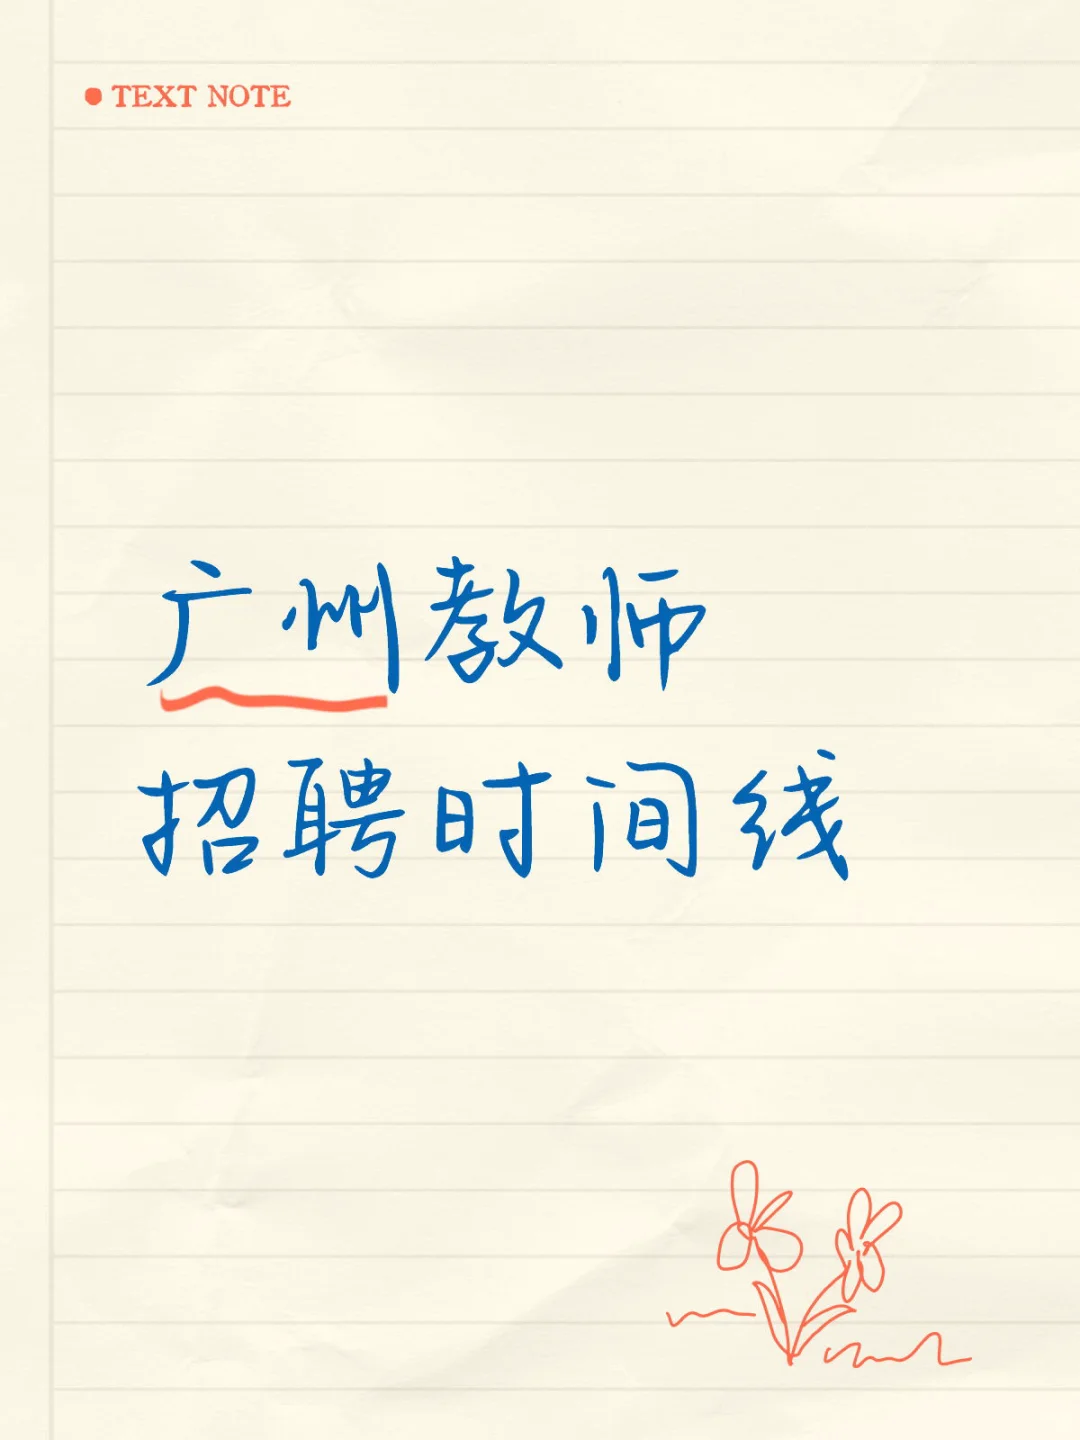 TEXT NOTE
广州教师
招聘时间线